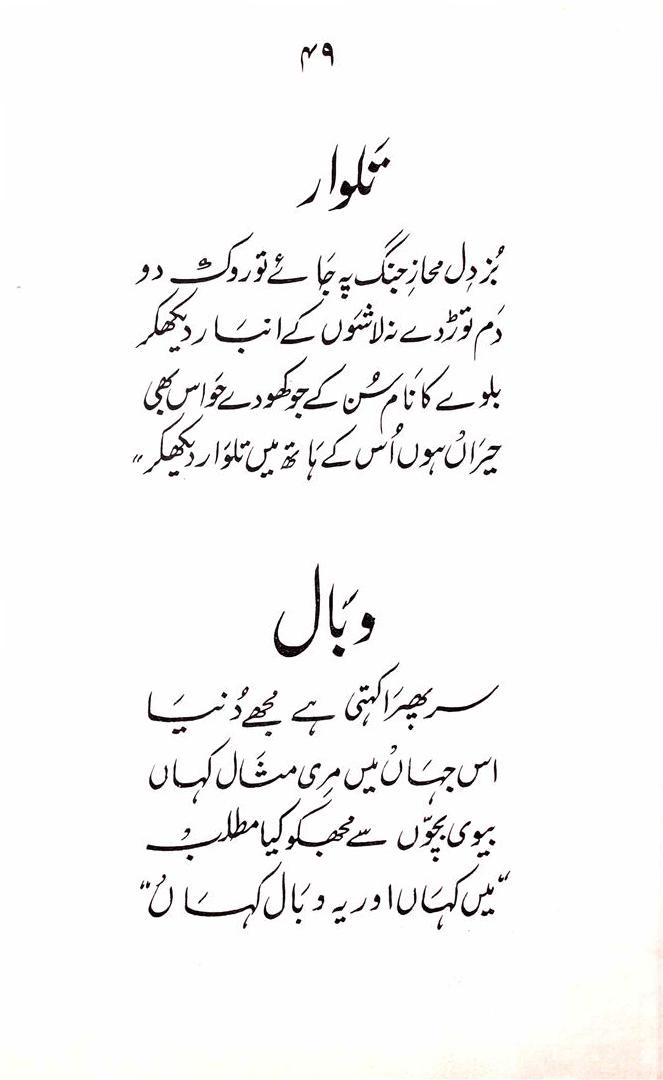 ۴۹
تلوار
بُزدِل محازِ جنگ پہ جَائے تو روک دو
دَم توڑ دے نہ لاشوں کے انبار دیکھکر
بلوے کا نَام سُن کے جو کھو دے حَواس بھی
حیرَاں ہوں اُس کے ہَاتھ میں تلوار دیکھکر"
وبَال
سر پھِرَا کہتی ہے مجھے دُنیَا
اس جہَاں میں مِری مثَال کہاں
بیوی بچّوں سے مجھکو کیا مطلب
"میں کہَاں اور یہ وبَال کہَاں"